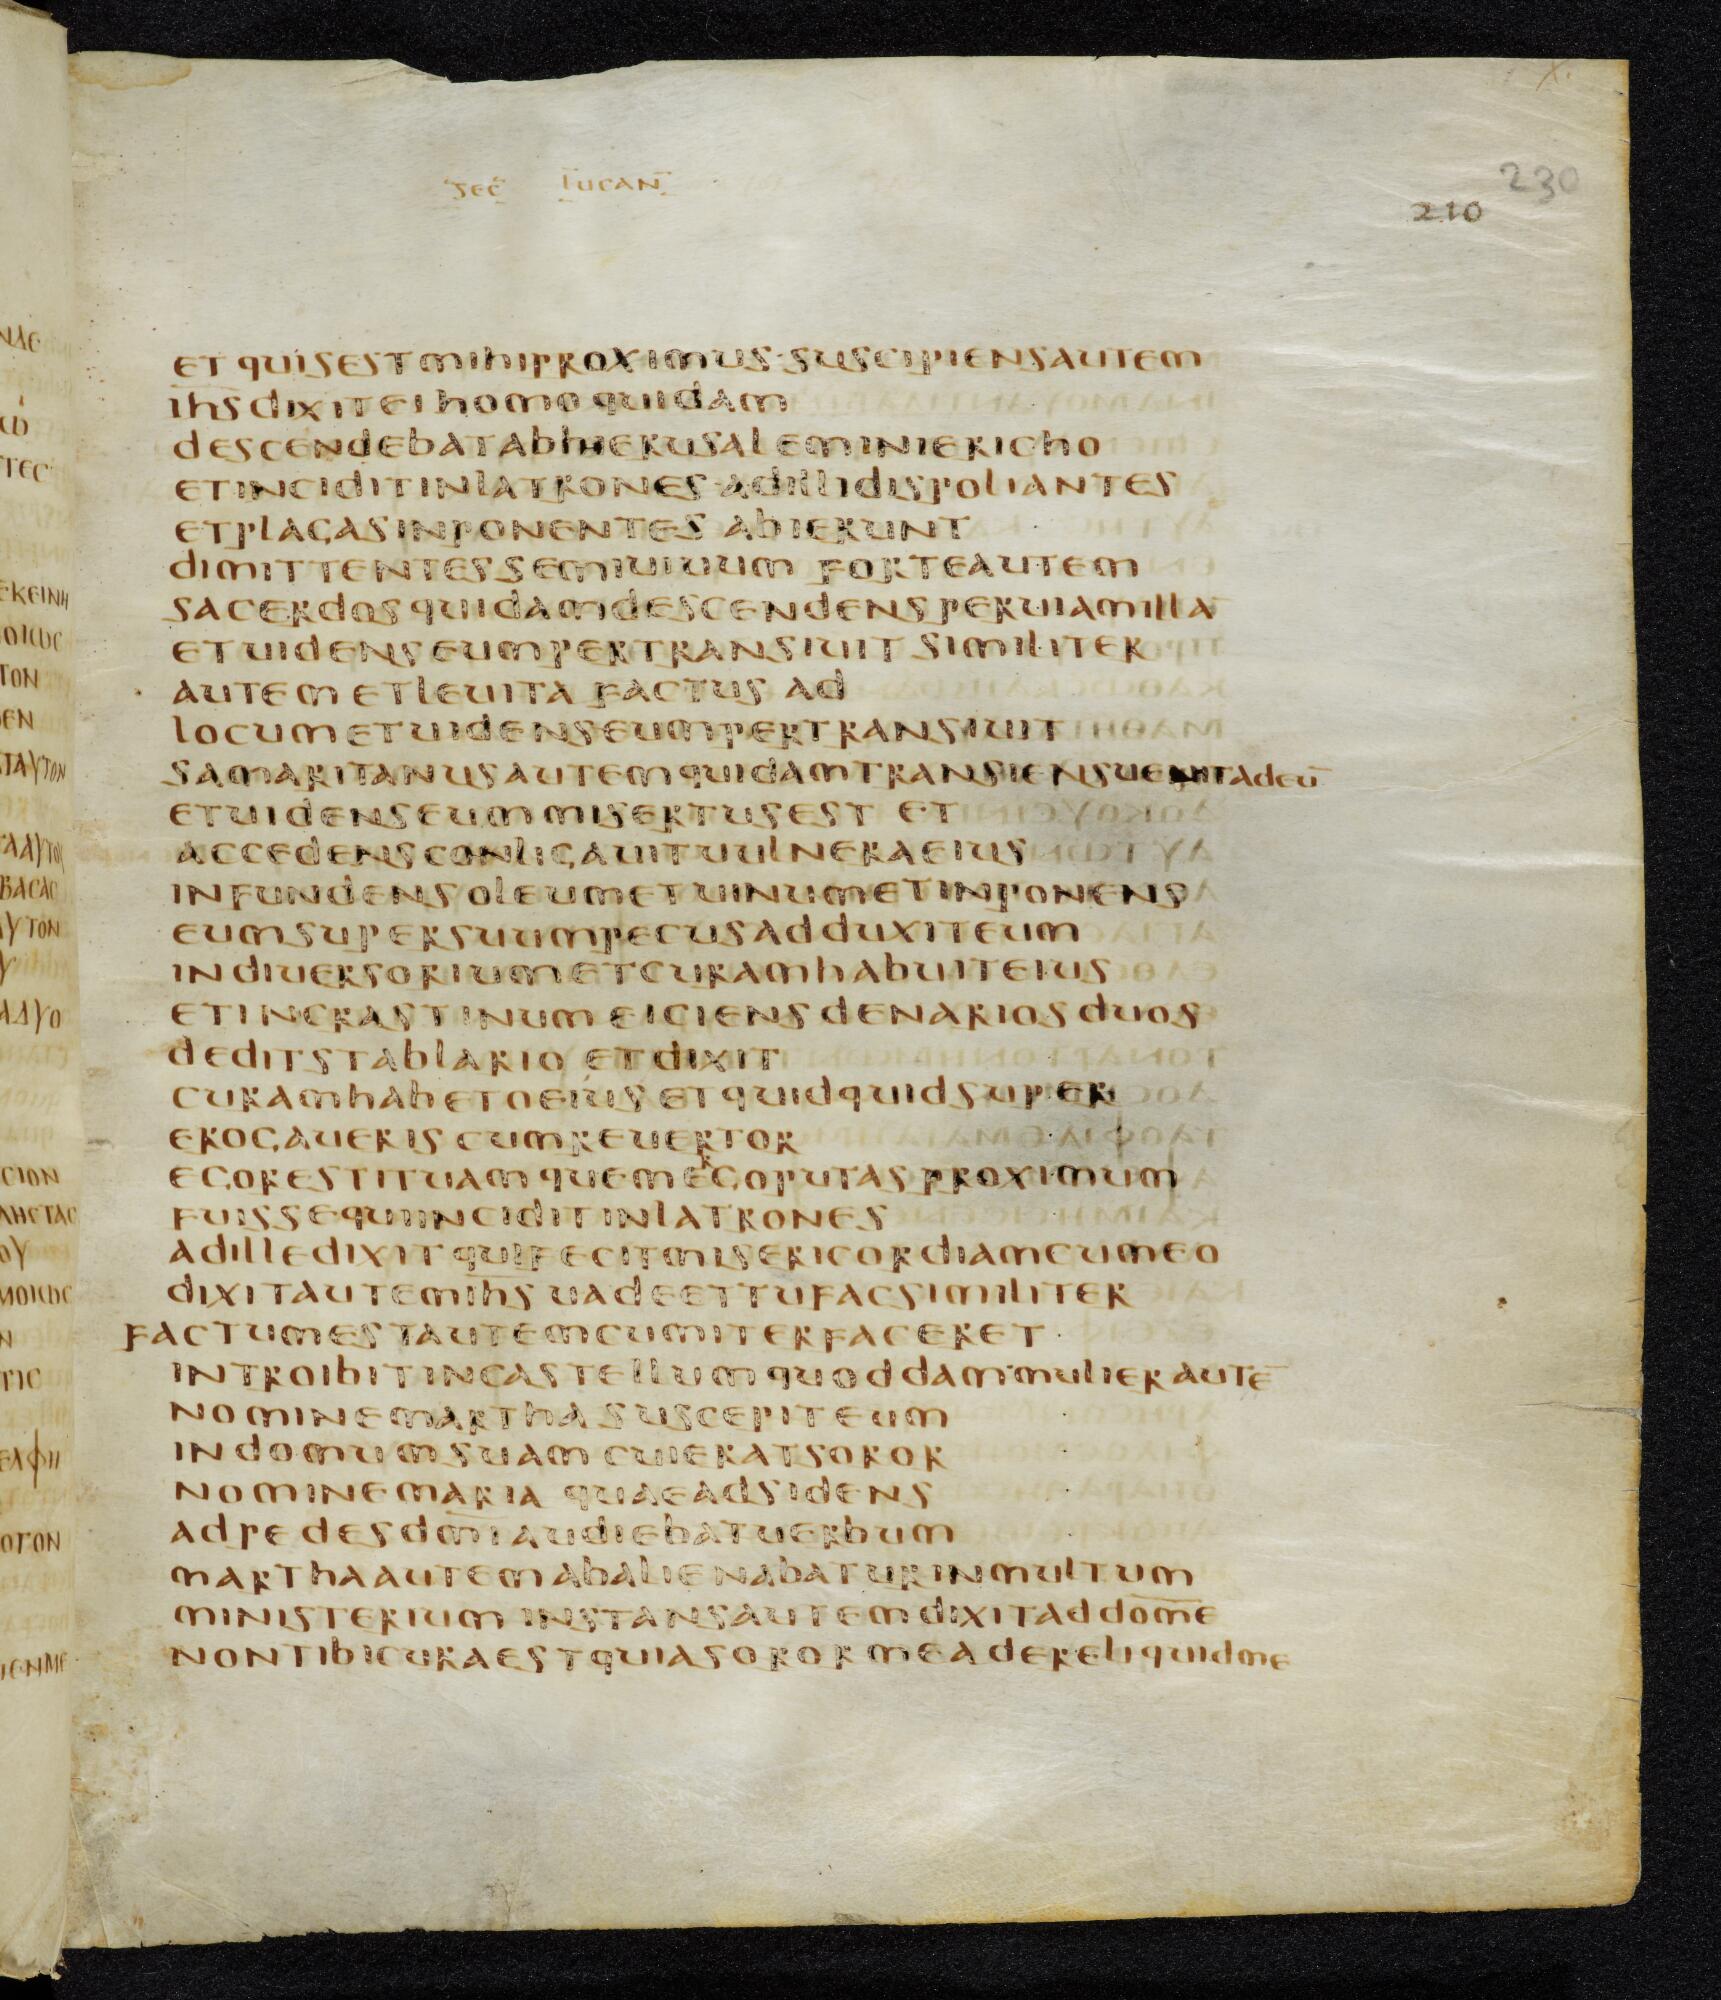 sec lucan
230
210
et quis est mihi proximus · suscipiens autem
ihs dixit ei homo quidam
descendebat ab hierusalem in iericho
et incidit in latrones · ad illi dispoliantes
et plagas inponentes abierunt
dimittentes semiuiuum forte autem
sacerdos quidam descendens per uia milla
et uidens eum pertransiuit similiter
autem et leuita factus ad
locum et uidens eum pertransiuit
samaritanus autem quidam transiens uenit ad eū
et uidens eum misertus est et
accedens conligauit uulnera eius
infundens oleum et uinum et inponens
eum super suum pecus adduxit eum
in diuersorium et curam habuit eius
et in crastinum eiciens denarios duos
dedit stablario et dixit
curam habeto eius et quidquid super
erogaueris cum reuertor
ego restituam quem ergo putas proximum
fuisse qui incidit in latrones
ad ille dixit qui fecit misericordiam cum eo
dixit autem ihs uade et tu fac similiter
factum est autem cum iter faceret
introibit in castellum quoddam · mulier autē
nomine martha suscepit eum
in domum suam cui erat soror
nomine maria quae adsidens
ad pedes dmi audiebat uerbum
martha autem abalienabatur in multum
ministerium instans autem dixit ad dome
non tibi cura est quia soror mea dereliquid me